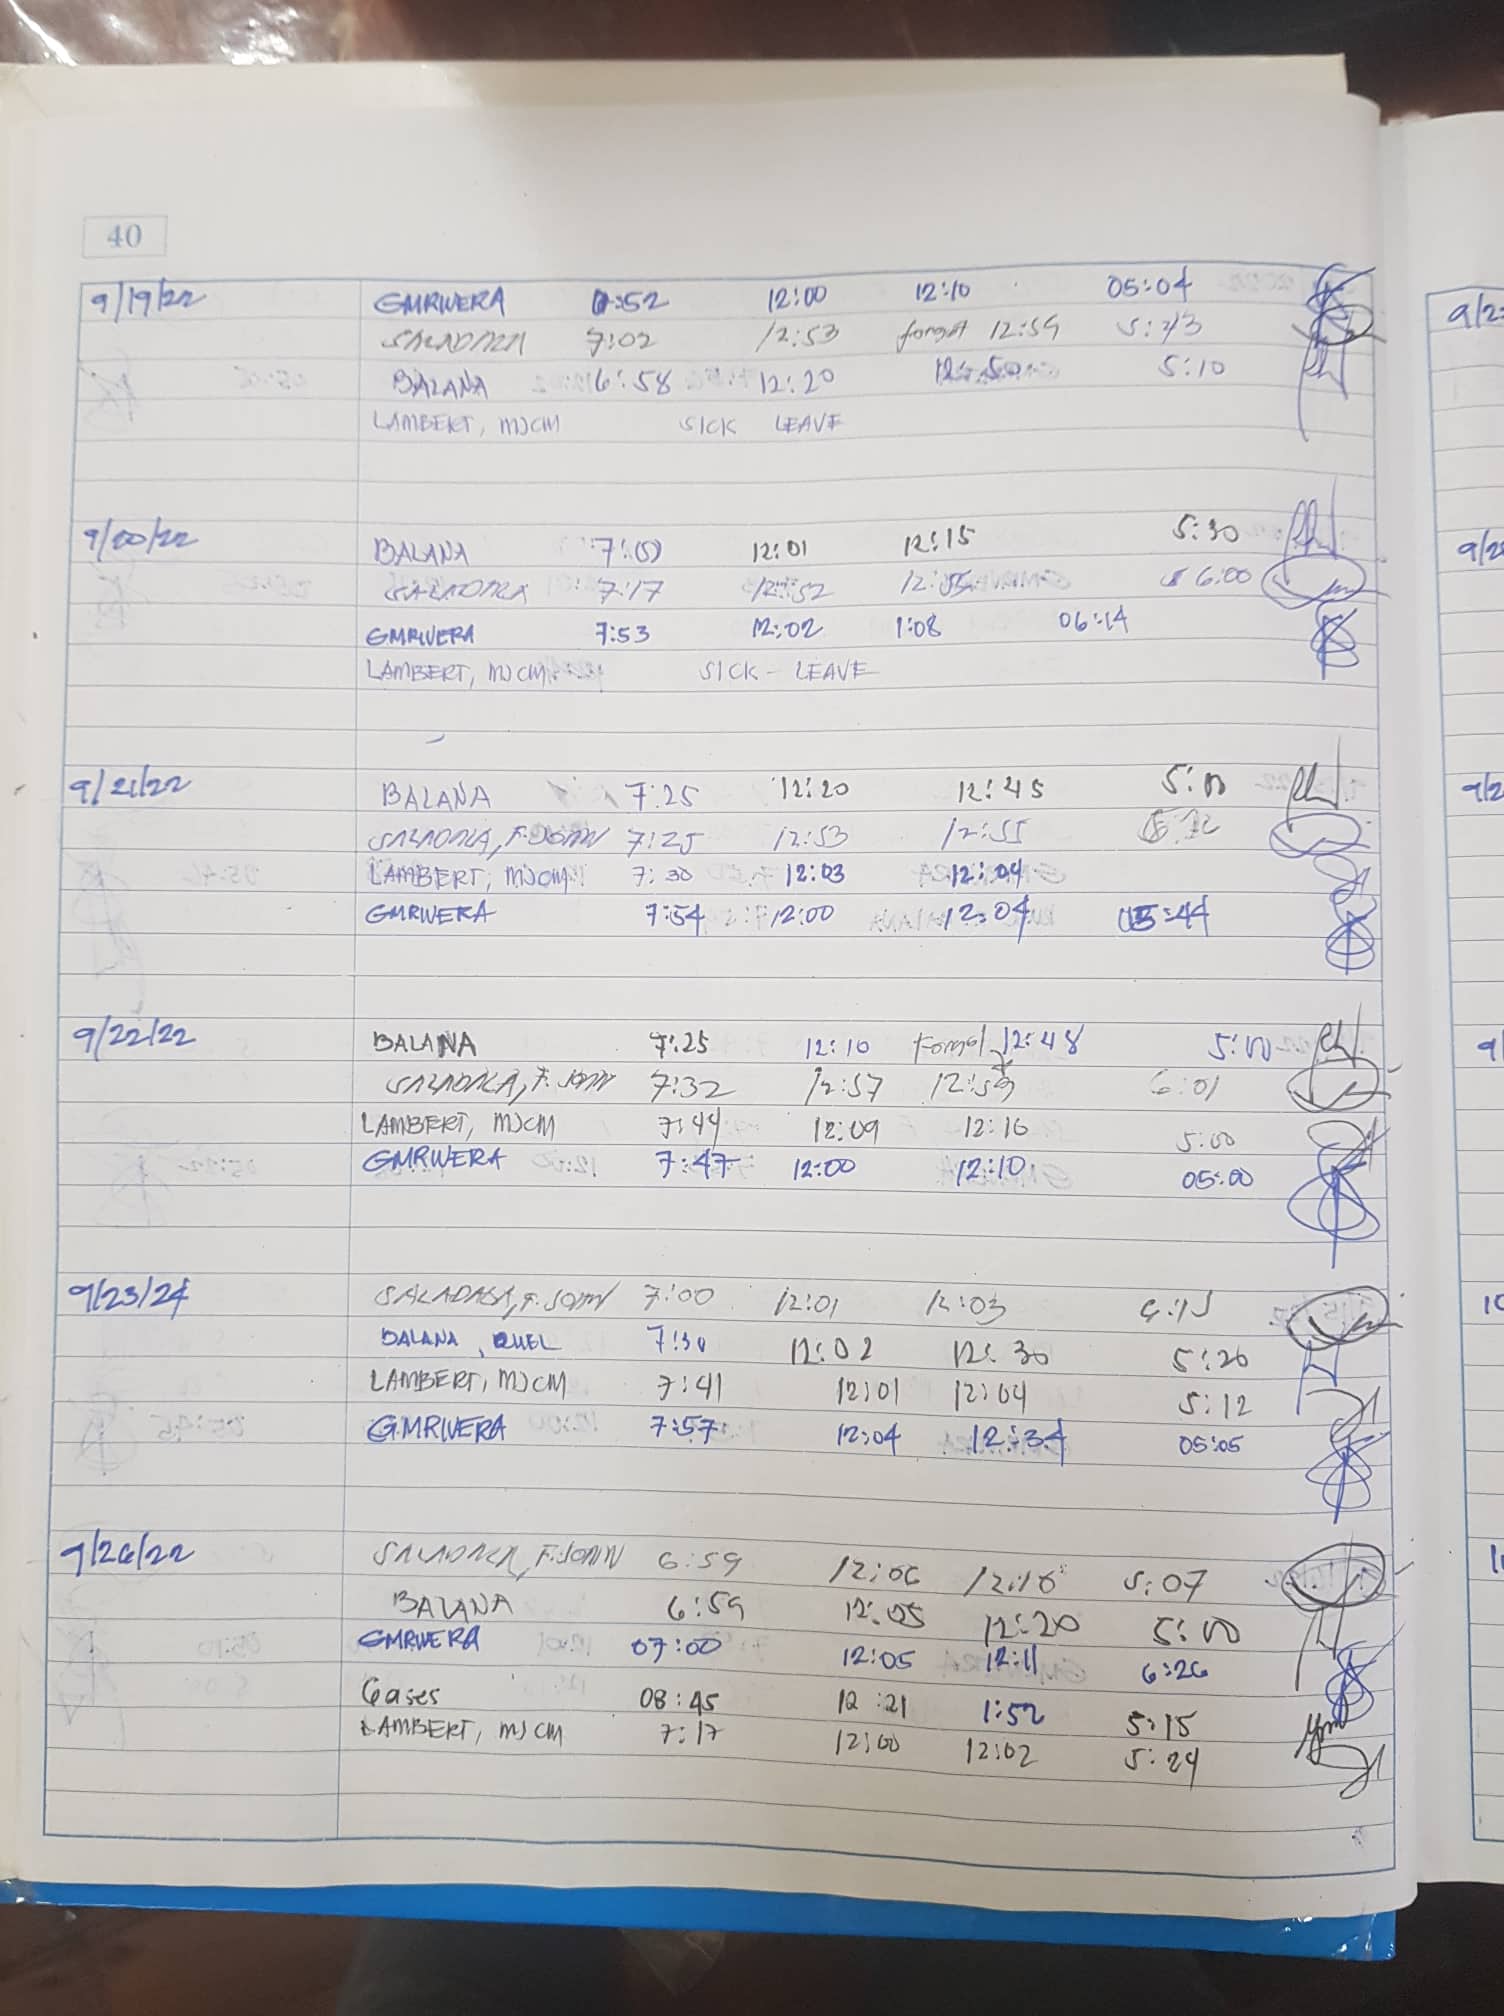 40
9/19/22 GMRIVERA :52 12:00 12:10 05:04
7:02 12:53 forgot 12:59 5:
BALANA 6:58 12:20 12:50 5:10
LAMBERT, MJCM SICK LEAVE
9/20/22 BALANA 12:01 12:15 5:30
7:17 12:52 12:55 6:00
GMRIVERA 7:53 12:02 1:08 06:14
LAMBERT, MJCM SICK - LEAVE
9/21/22 BALANA 7:25 12:20 12:45 5:00
F. JOHN 7:25 12:53 12:55
LAMBERT, MJCM 7:30 12:03 12:04
GMRIVERA 7:54 12:00 12:04 05:44
9/22/22 BALANA 7:25 12:10 Forgot 12:48 5:00
F. JOHN 7:32 12:57 12:59 6:01
LAMBERT, MJCM 7:44 12:09 12:10 5:00
GMRIVERA 7:47 12:00 12:10 05:00
9/23/24 F. JOHN 7:00 12:01 12:03
BALANA, QUEL 7:30 12:02 12:30 5:20
LAMBERT, MJCM 7:41 12:01 12:04 5:12
G.MRIVERA 7:57 12:04 12:34 05:05
9/26/22 F. JOHN 6:59 12:06 12:10 5:07
BALANA 6:59 12:05 12:20 5:00
GMRIVERA 07:00 12:05 12:11 6:26
Gases 08:45 12:21 1:52 5:15
LAMBERT, MJCM 7:17 12:00 12:02 5:24